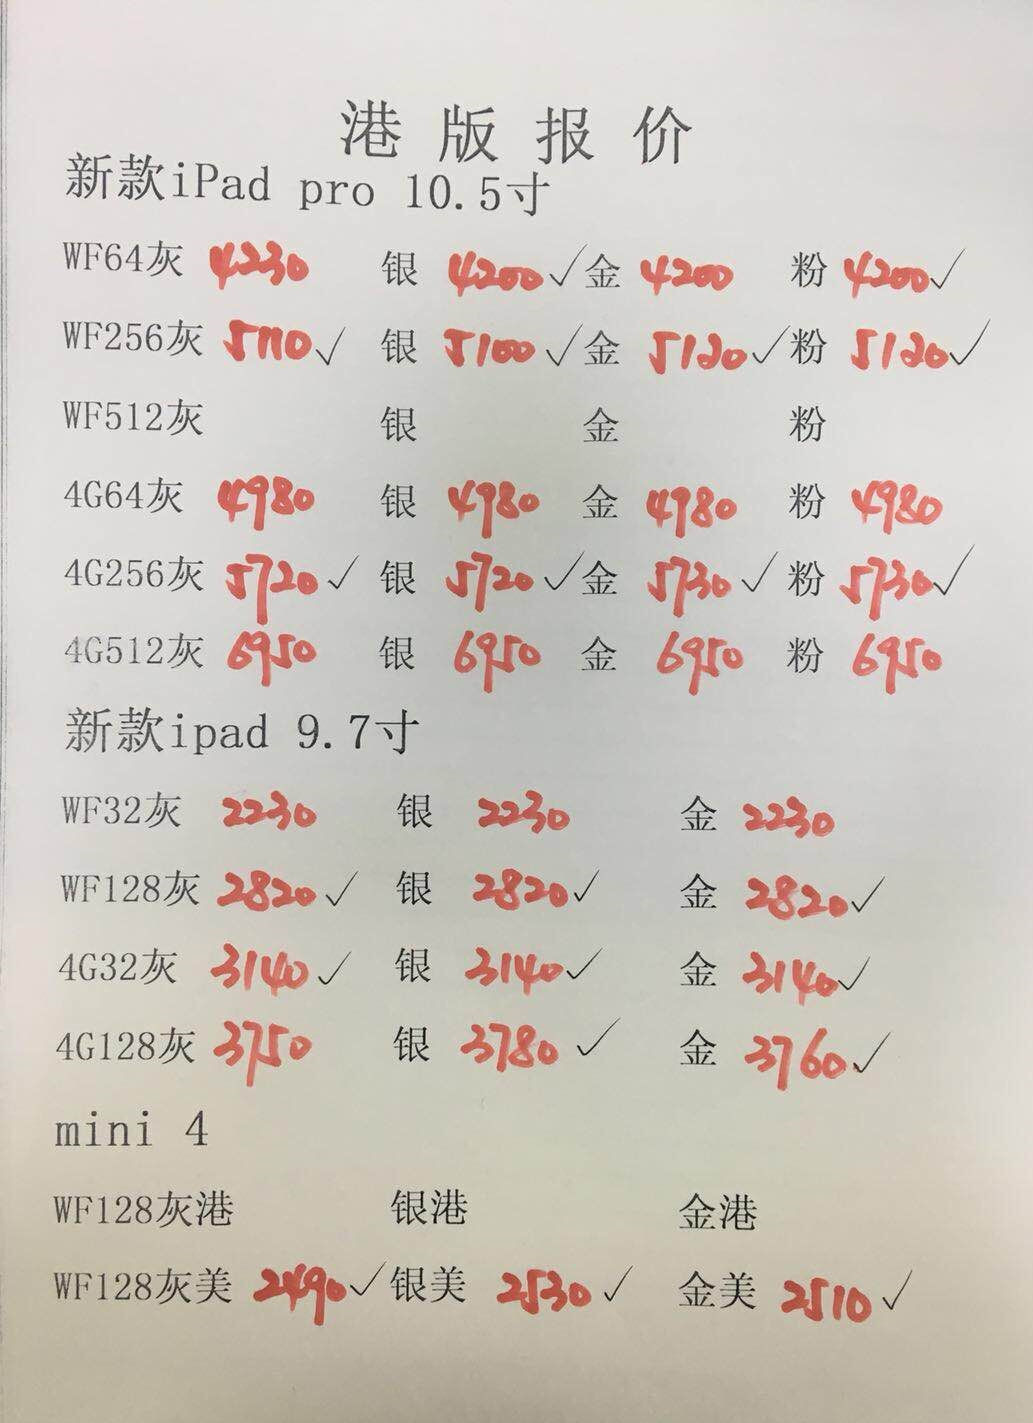 港版报价
新款iPad pro 10.5寸
WF64灰 4230 银 4200✓ 金 4200 粉 4200✓
WF256灰 5110✓ 银 5100✓ 金 5120✓ 粉 5120✓
WF512灰 银 金 粉
4G64灰 4980 银 4980 金 4980 粉 4980
4G256灰 5720✓ 银 5720✓ 金 5730✓ 粉 5730✓
4G512灰 6950 银 6950 金 6950 粉 6950
新款ipad 9.7寸
WF32灰 2230 银 2230 金 2230
WF128灰 2820✓ 银 2820✓ 金 2820✓
4G32灰 3140✓ 银 3140✓ 金 3140✓
4G128灰 3750 银 3780✓ 金 3760✓
mini 4
WF128灰港 银港 金港
WF128灰美 2490✓ 银美 2530✓ 金美 2510✓